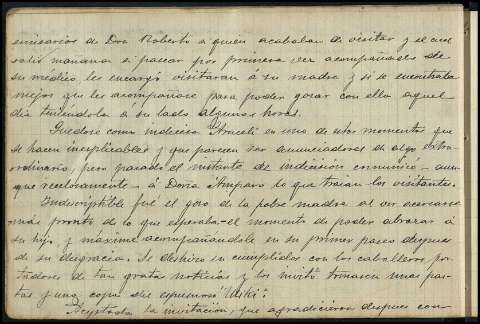 emisarios de Don Roberto a quién acababan de visitar y el cual
salia mañana á pasear por primera vez acompañados de
su médico les encargó visitaran á su madre y si se encontraba
mejor que les acompañase para poder gozar con ella aquel
dia teniéndola á su lado algunas horas.
Quedose como indecisa Araceli en uno de estos momentos que
se hacen inexplicables y que parecen ser anunciadores de algo extra-
ordinario, pero pasado el instante de indecisión comunicó - aun-
que recelosamente - á Doña Amparo lo que traian los visitantes.
Indescriptible fué el gozo de la pobre madre al ver acercarse
más pronto de lo que esperaba el momento de poder abrazar á
su hijo y máxime acompañándole en su primer paseo despues
de su desgracia. Se deshizo en cumplidos con los caballeros por-
tadores de tan gratas noticias y los invitó tomasen unas pas-
tas y una copa de
Aceptada la invitación, que agradicieron despues con-